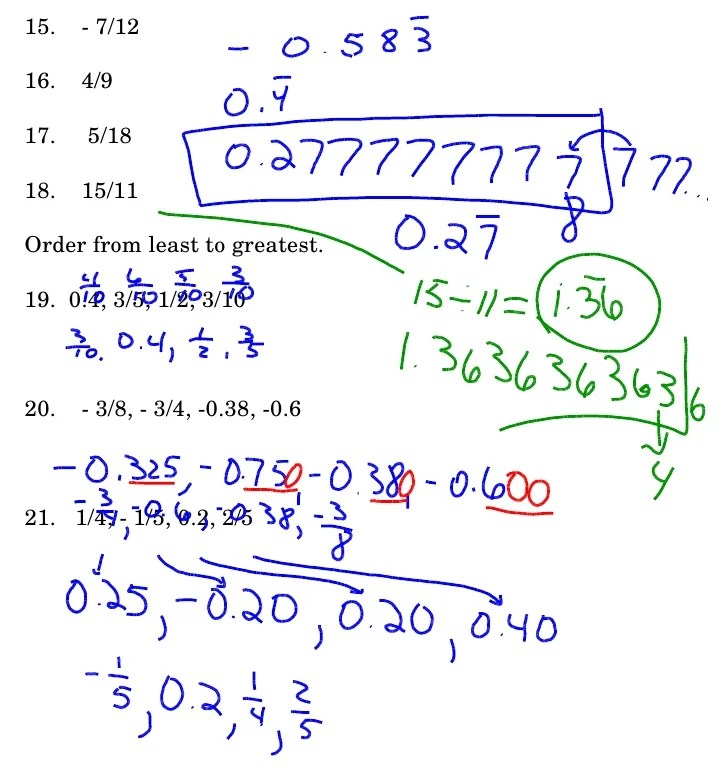 15. - 7/12
- 0.583̅
16. 4/9
0.4̅
17. 5/18
0.2777777777 777...
8
18. 15/11
0.27̅
Order from least to greatest.
15÷11= 1.3̅6̅
19. 0.4, 3/5, 1/2, 3/10
4/10 6/10 5/10 3/10
3/10, 0.4, 1/2, 3/5
1.363636363 6
4
20. - 3/8, - 3/4, -0.38, -0.6
-0.325, -0.750 -0.380 -0.600
-3/4, -0.6, -0.38, -3/8
21. 1/4, - 1/5, 0.2, 2/5
0.25, -0.20, 0.20, 0.40
-1/5, 0.2, 1/4, 2/5